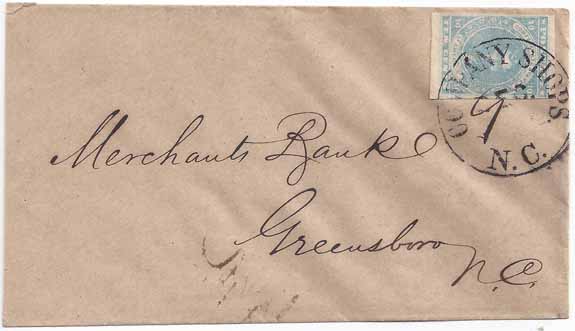 COMPANY SHOPS
N.C.
Merchants Bank
Greensboro
N.C.